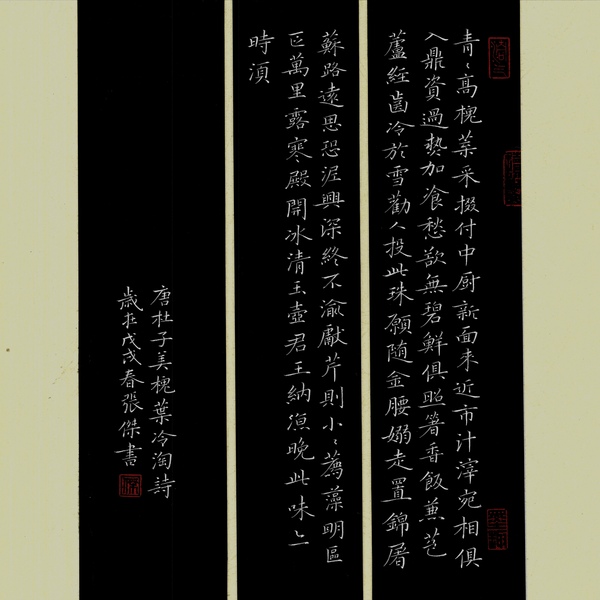 青〻高槐葉采掇付中厨新面来近市汁滓宛相俱
入鼎資過熱加飡愁欲無碧鮮俱照箸香飯蒹苞
蘆經齒冷於雪勸人投此珠願隨金腰嫋走置錦屠
蘇路遠思恐泥興深終不渝獻芹則小〻薦藻明區
区萬里露寒殿開冰清玉壺君王納涼晚此味亦
時湏
唐杜子美槐葉冷淘詩
歲在戊戌春張傑書